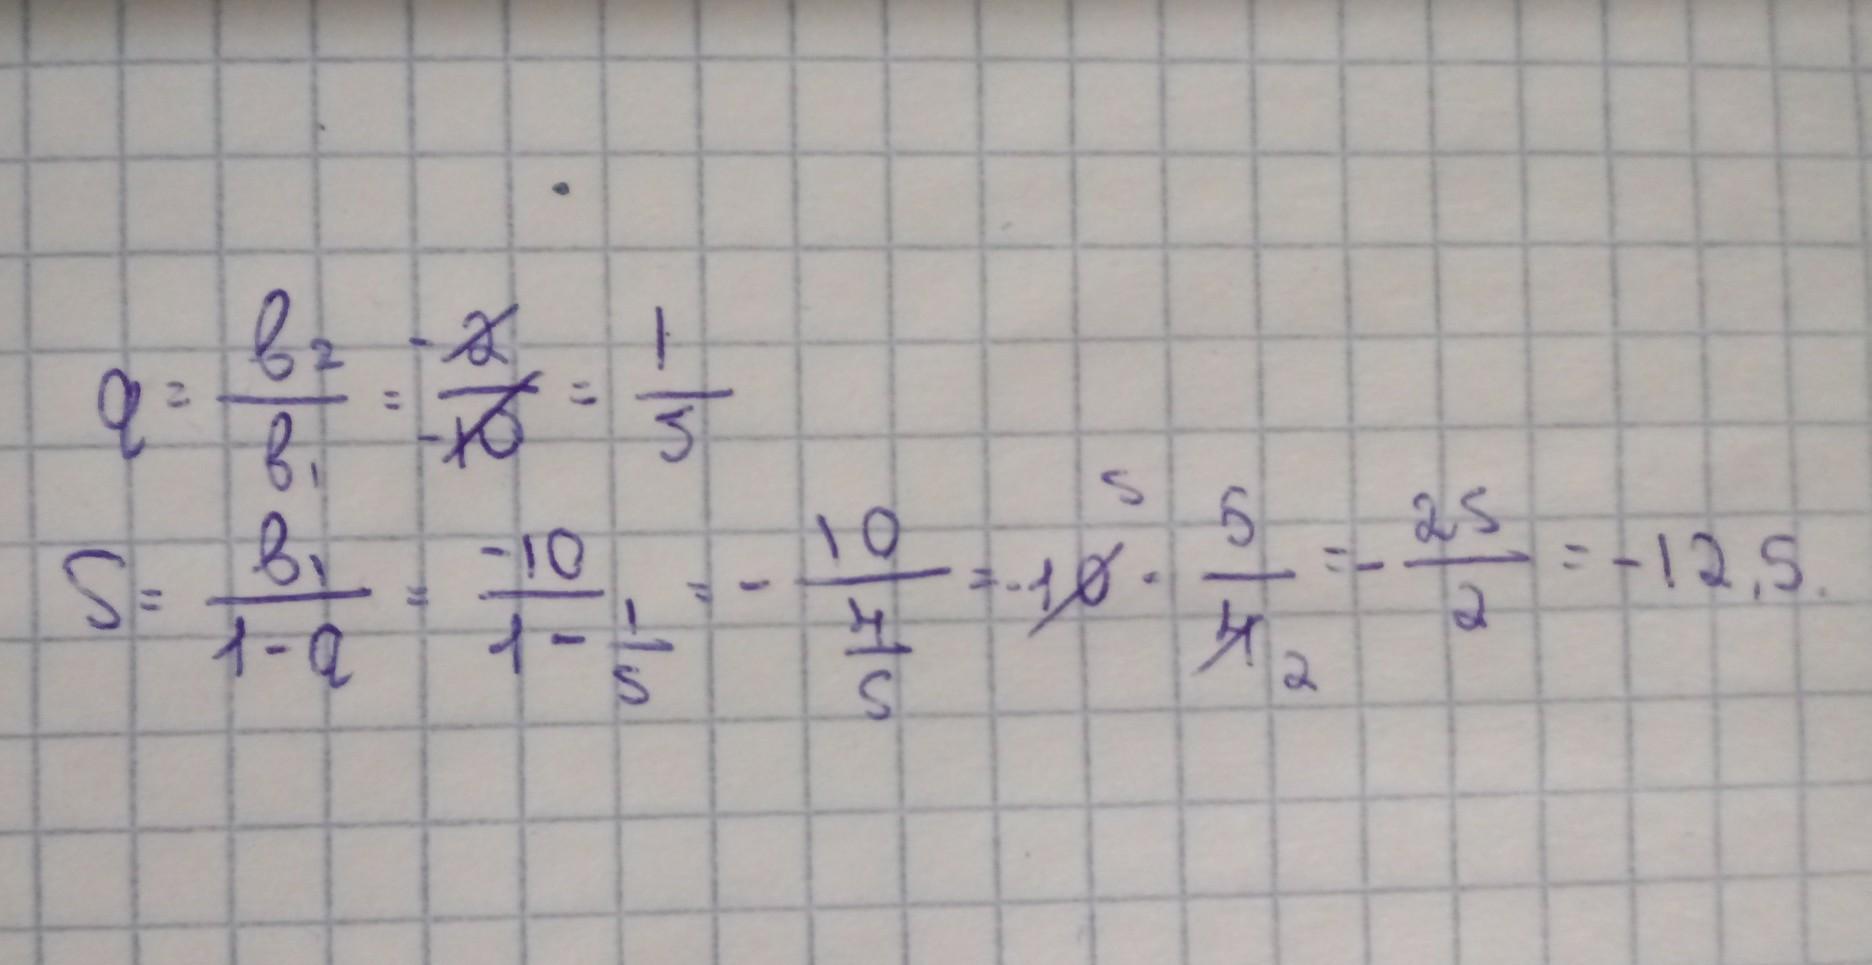 q = b₂/b₁ = -2/-10 = 1/5
S = b₁/(1-q) = -10/(1-1/5) = -10/(4/5) = -10 5 · 5/4 2 = -25/2 = -12,5.